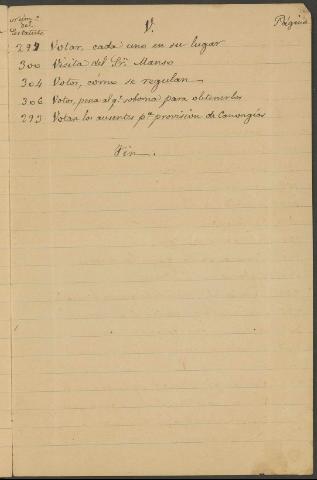 Núm.º
del
Estatuto
V.
Página
292 Votar, cada uno en su lugar
300 Visita del Sr. Manso
304 Votos, cómo se regulan
306 Votos, pena al q.e soborna para obtenerlos
293 Votan los ausentes p.a provisión de Canongías
Fin.